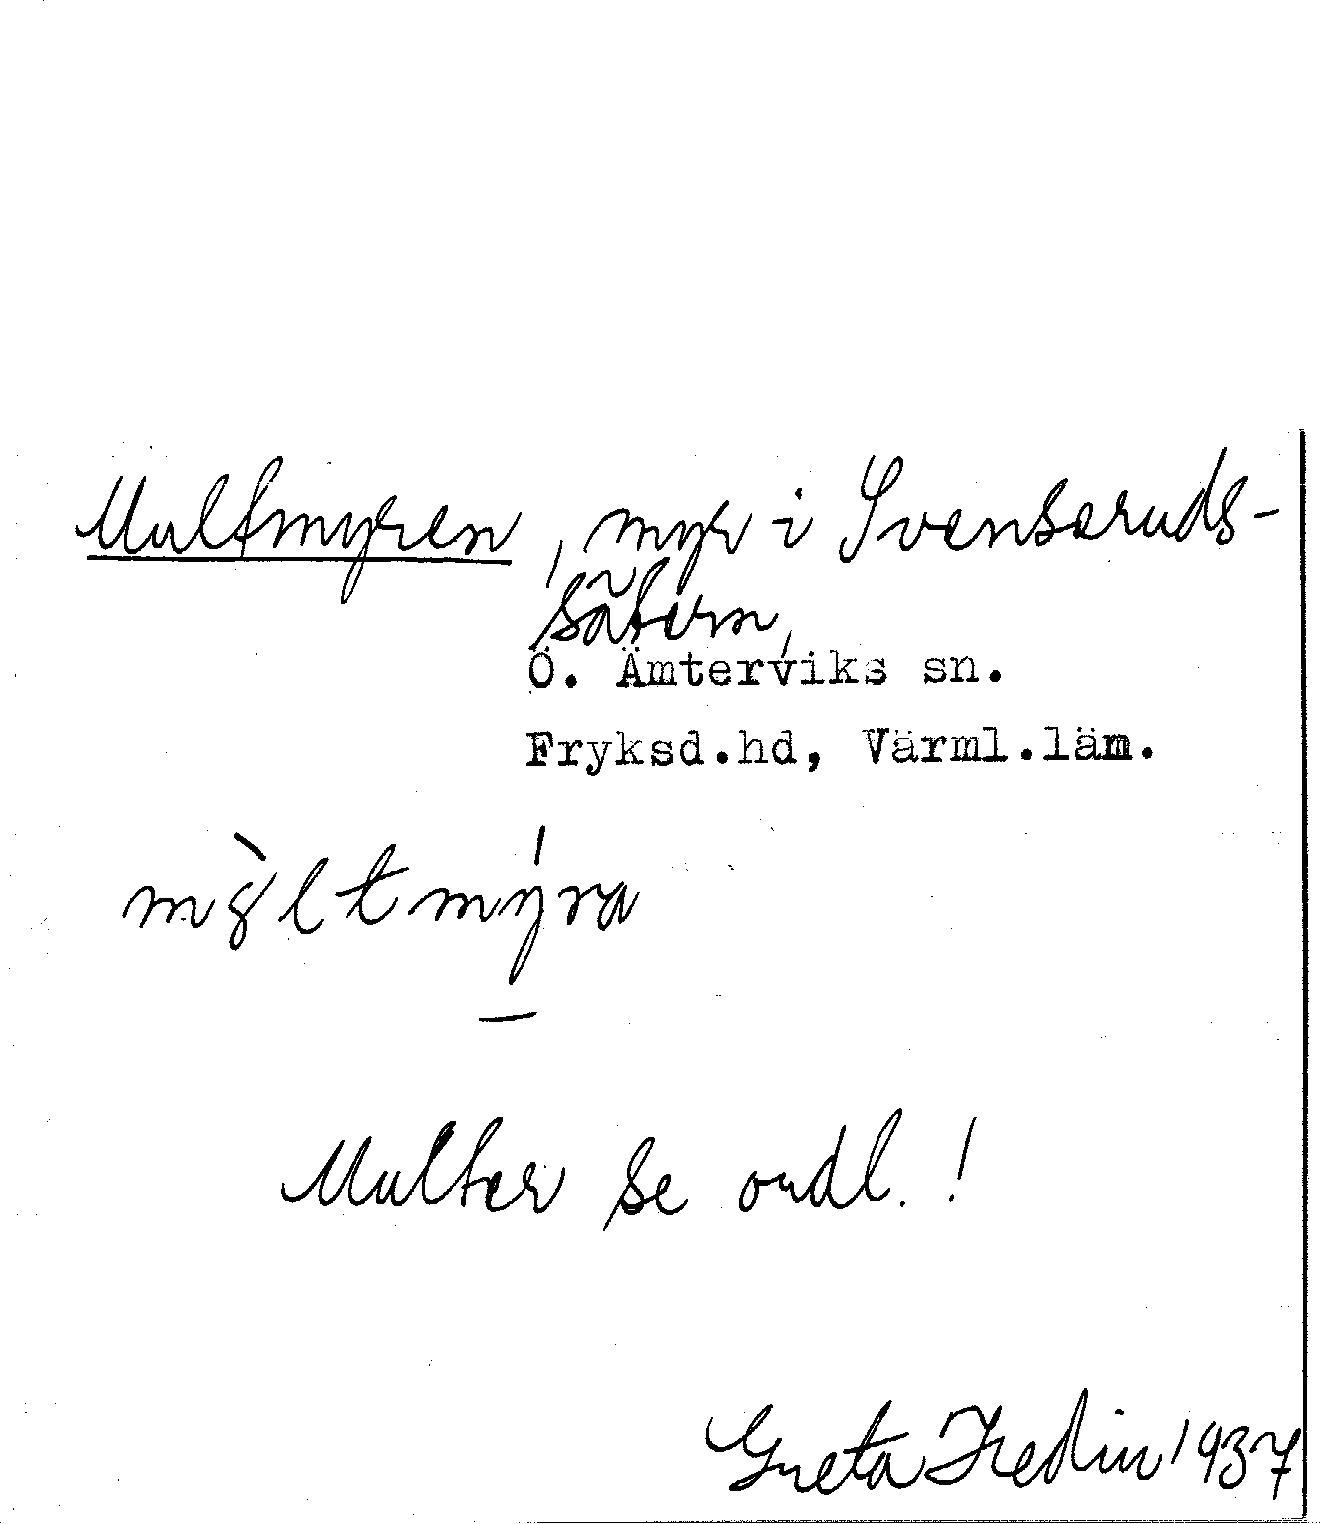 Multmyren, myr i Svenseruds-
sätern,
Ö. Ämterviks sn.
Fryksd.hd, Värml.läm.
m8̀ltmýra
Multer se ordl.!
Greta Hedin 1937